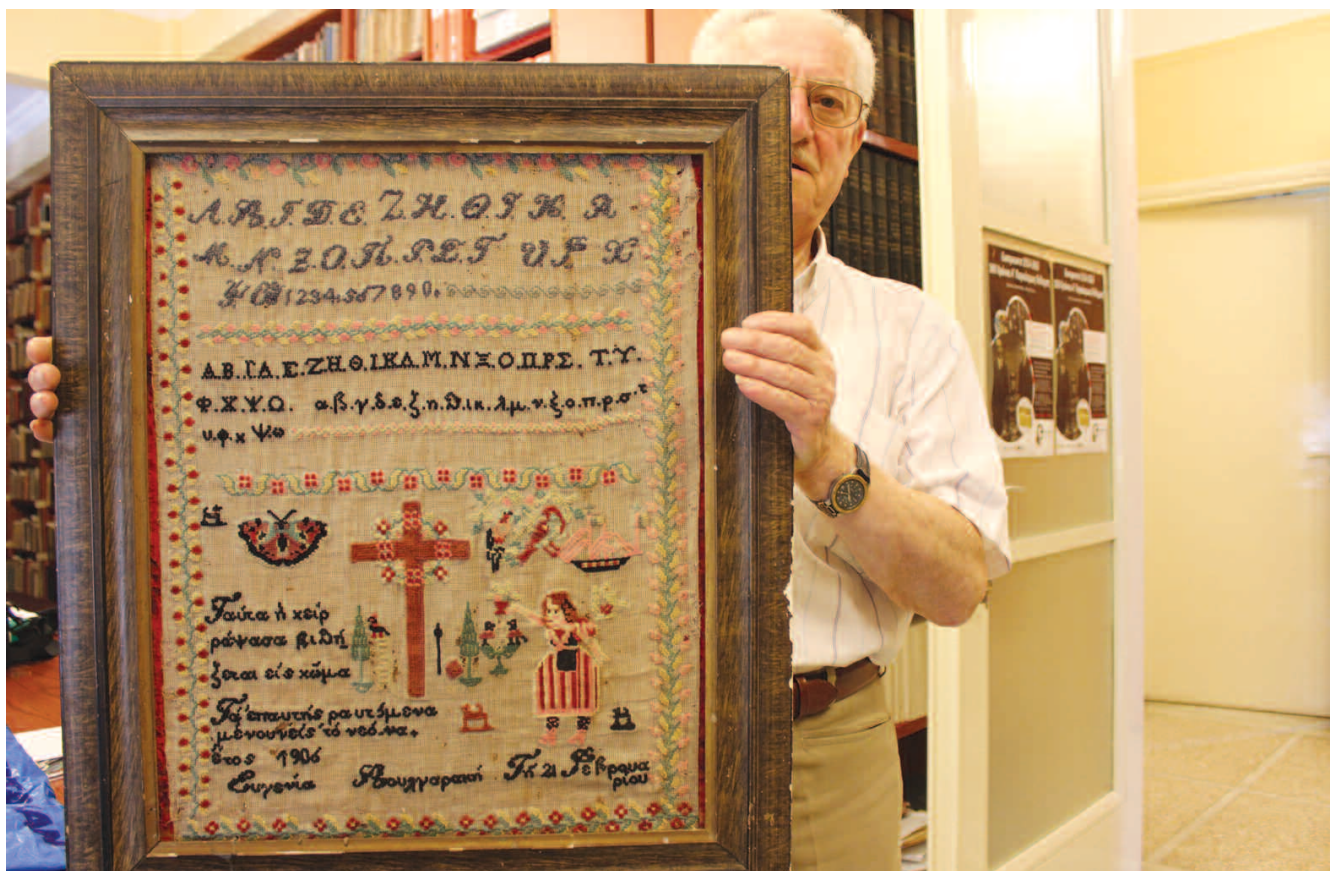 Α.Β.Γ.Δ.Ε. Ζ.Η.Θ.Ι.Κ. Λ
Μ.Ν.Ξ.Ο.Π.Ρ.Σ.Τ Υ.Φ Χ
Ψ Ω 1234.567890.
Α.Β.ΓΔ.Ε.ΖΗ.Θ.ΙΚΛ.Μ.ΝΞΟ.ΠΡΣ.Τ.Υ.
Φ.Χ.Ψ.Ω. α.β.γ.δ.ε.ζ.η.θ.ικ.λμ.ν.ξ.ο.π.ρ.σ τ
υ.φ.χ ψω
Ταύτα ἡ χείρ
ράψασα βιθή
ξεται είς χῶμα
Τά ἐπαυτής ραυτόμενα
μένουνείς τό νεόνα.
ἔτος 1906
Ευγενία Βουλγαρακή Τῆ 21 Φεβρουα
ρίου